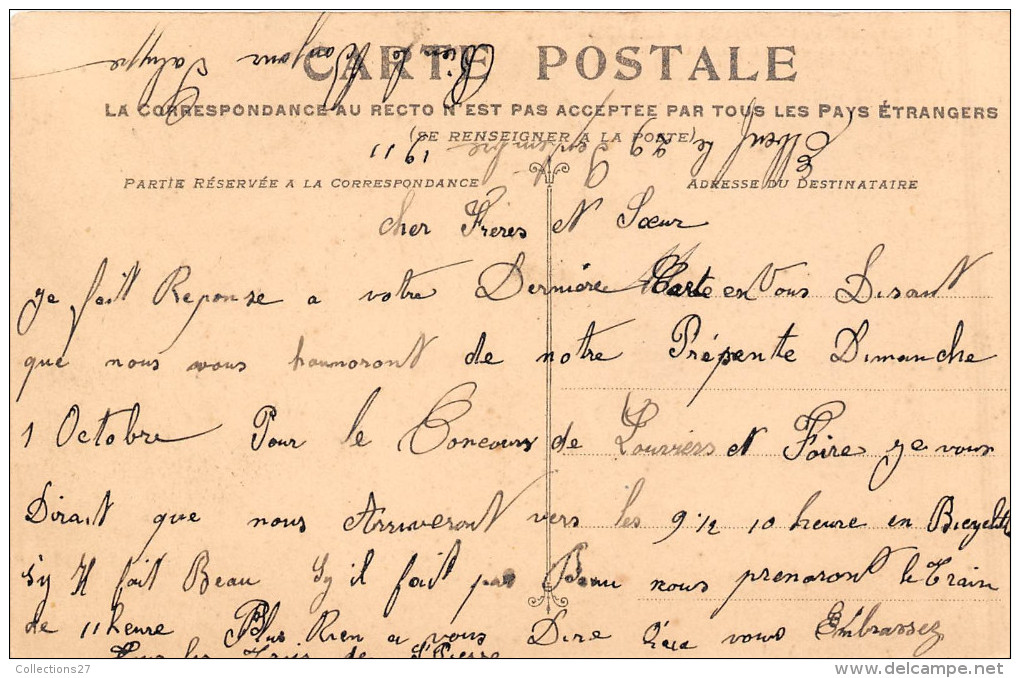 CARTE POSTALE
Bien le Bonjour
LA CORRESPONDANCE AU RECTO N'EST PAS ACCEPTÉE PAR TOUS LES PAYS ÉTRANGERS
(SE RENSEIGNER A LA POSTE)
le 29 Septembre 1911
PARTIE RÉSERVÉE A LA CORRESPONDANCE
ADRESSE DU DESTINATAIRE
cher Frères et Sœur
je fait Reponse a votre Dernière Carte en Vous Disant
que nous vous haumoront de notre Présente Dimanche
1 Octobre Pour le Concours de Louviers et Foire je vous
Dirait que nous Arriveront vers les 9 1/2 10 heure en Bicyclette
s'y il fait Beau sy il fait pas Beau nous prenoront le train
de 11 heure Plus Rien a vous Dire vous Embrassez
Tous les Trois de St Pierre
Collections27
delcampe.net